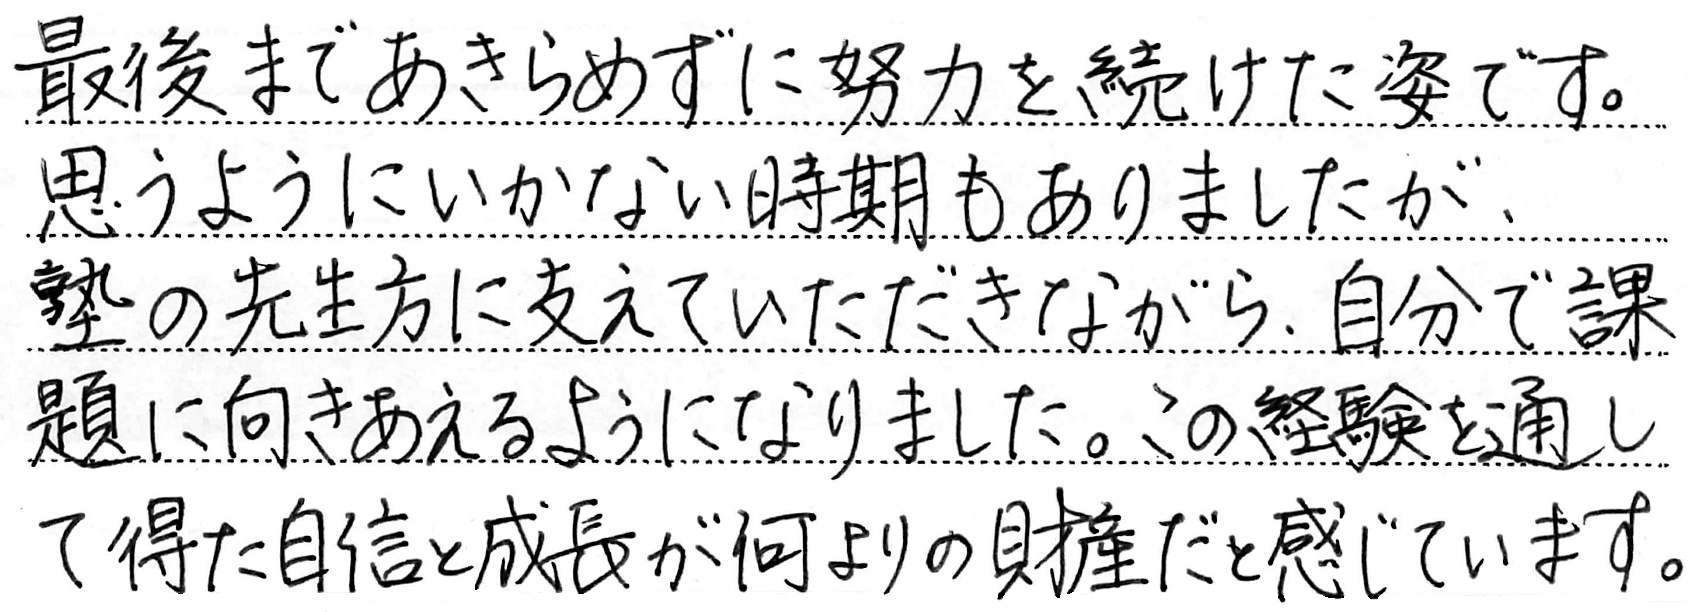 最後まであきらめずに努力を続けた姿です。
思うようにいかない時期もありましたが、
塾の先生方に支えていただきながら、自分で課
題に向きあえるようになりました。この経験を通し
て得た自信と成長が何よりの財産だと感じています。